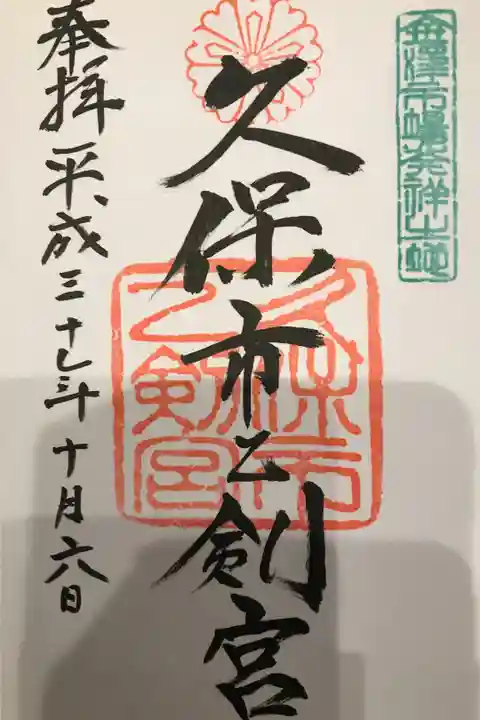 金澤市場発祥之地
久保市乙剣宮
久保市
乙剣宮
奉拝 平成三十年十月六日